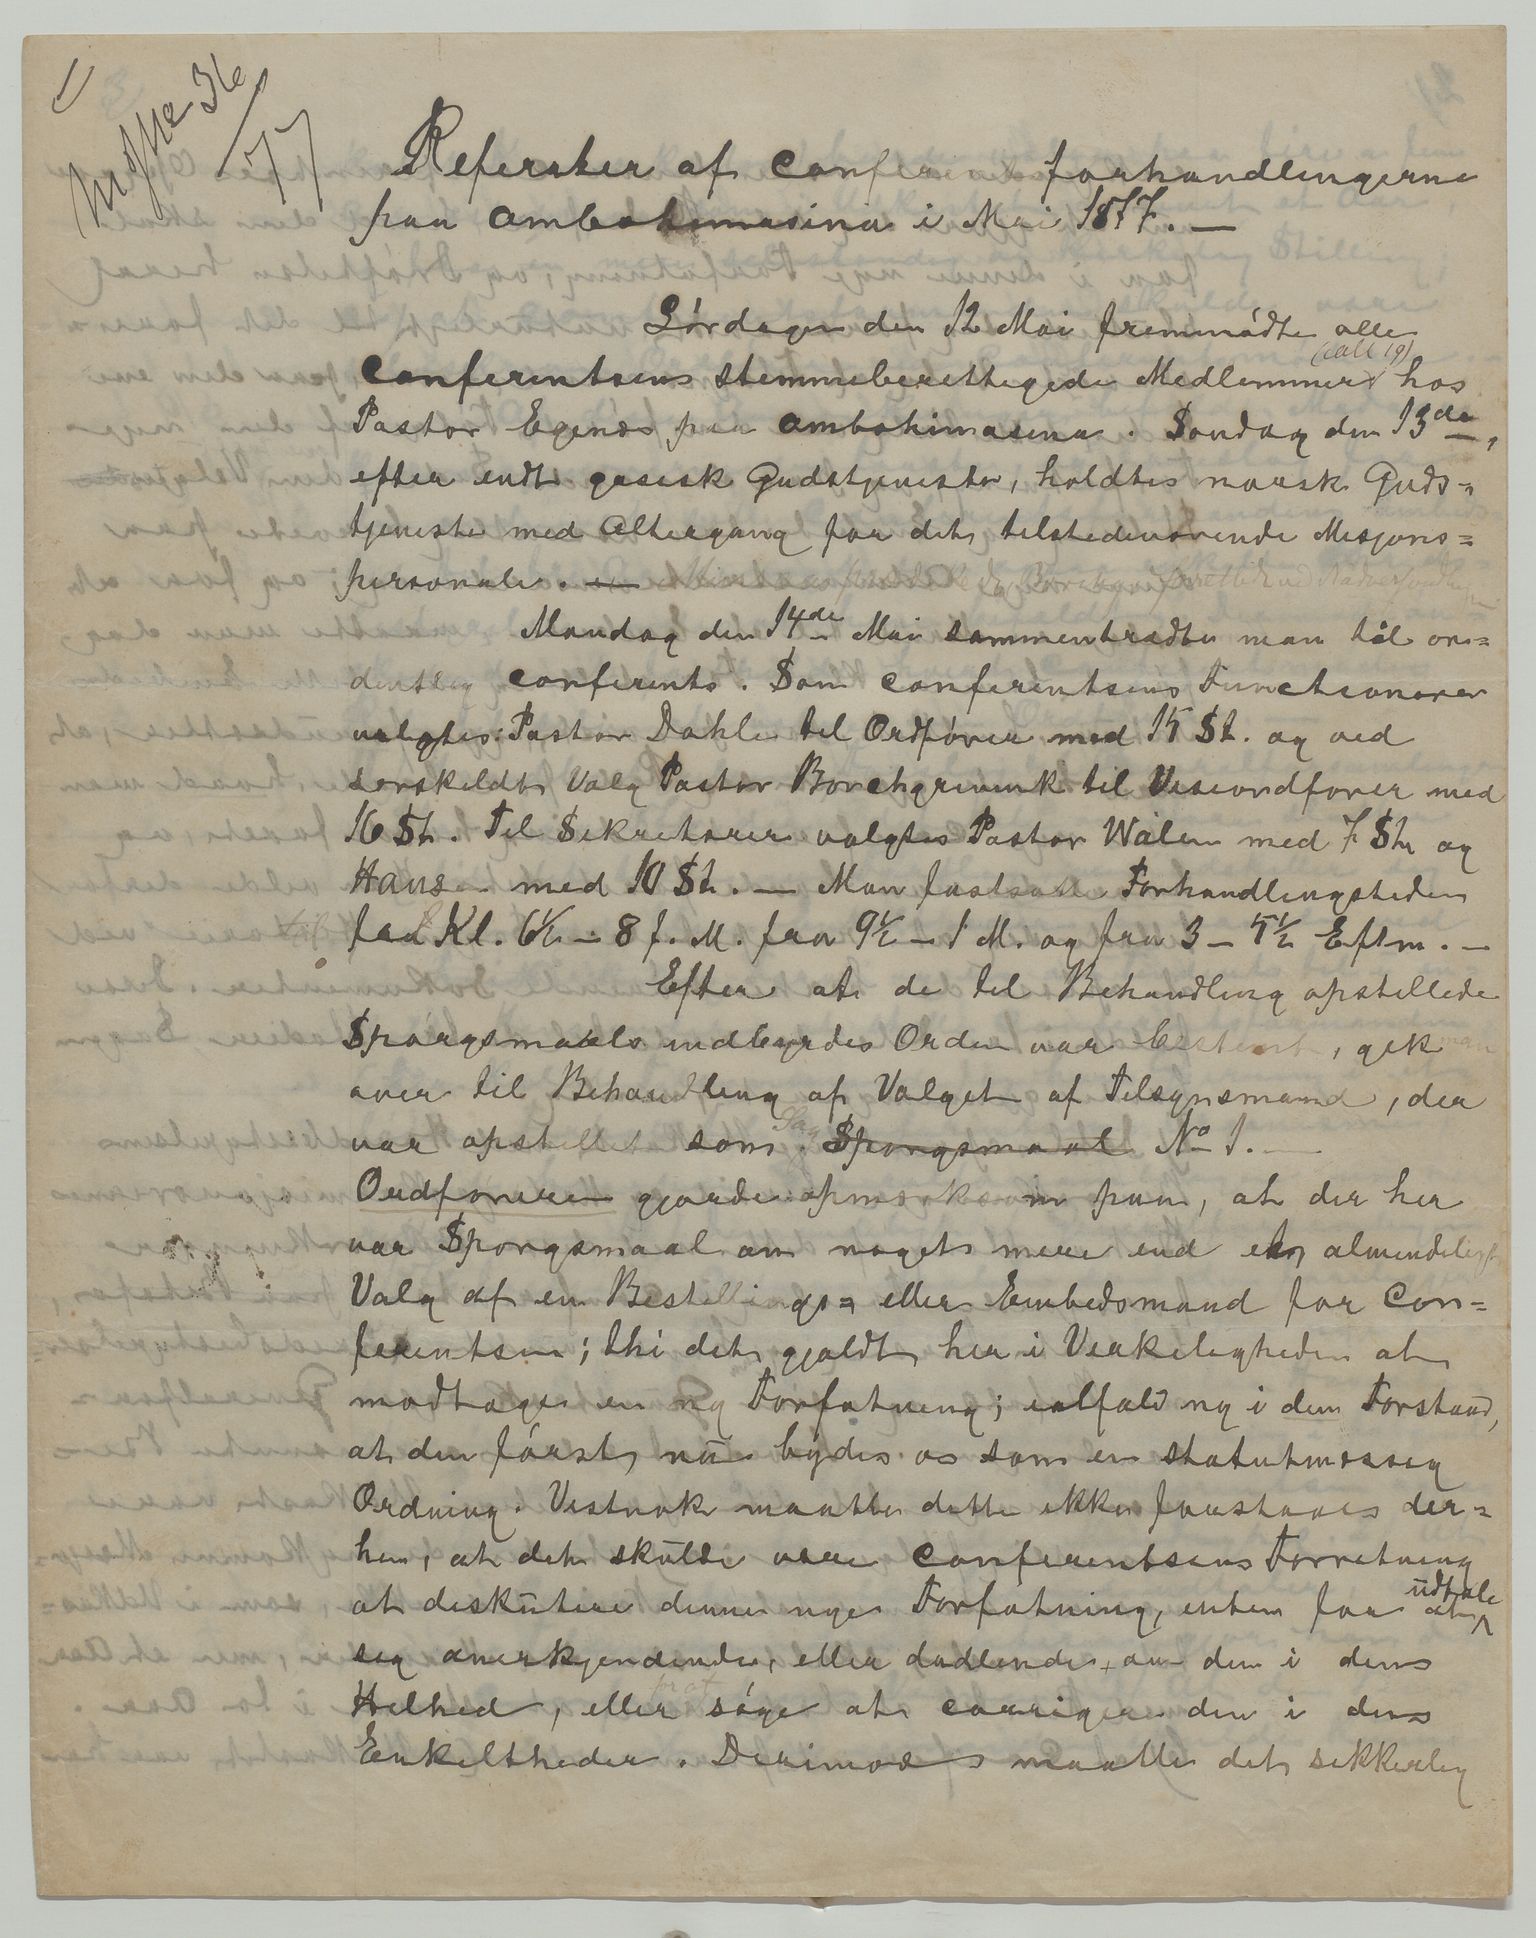 Referater af Conferentsforhandlingerne
paa Ambohimasina i Mai 1877. —
Lørdagen den 12 Mai fremmødte alle
Conferentsens stemmeberettigede Medlemmer (ialt 19) hos
Pastor Egenæs paa Ambohimasina. Søndag den 13de,
efter endt gasisk Gudstjeneste, holdtes norsk Guds=
tjeneste med Altergang for det tilstedeværende Misjons=
personale. —
Mandag den 14de Mai sammentraadte man til or=
dentlig Conferents. Som Conferentsens Functionærer
valgtes: Pastor Dahle til Ordfører med 15 St. og ved
særskildt Valg Pastor Borchgrevink til Viseordfører med
16 St. Til Sekretærer valgtes Pastor Walen med 7 St. og
Hansen med 10 St. — Man fastsatte Forhandlingstiden
fra Kl. 6½ – 8 f. M. fra 9½ – 1 M. og fra 3 – 5½ Eftm. —
Efter at de til Behandling opstillede
Spørgsmaals indbyrdes Orden var bestemt, gik man
over til Behandling af Valget af Tilsynsmand, der
var opstillet som Sag Spørgsmaal No 1. —
Ordføreren gjorde opmærksom paa, at der her
var Spørgsmaal om noget mere end et almindeligt
Valg af en Bestillings= eller Embedsmand for Con=
ferentsen; thi det gjaldt her i Virkeligheden at
modtage en ny Forfatning; ialfald ny i den Forstand,
at den først nu bydes os som en statutmæssig
Ordning. Vistnok maatte dette ikke forstaaes der=
hen, at det skulde være Conferentsens Forretning
at diskutere denne nye Forfatning, enten for at udtale
sig anerkjendende, eller dadlende, om den i dens
Helhed, eller for at søge at corrigere den i dens
Enkeltheder. Derimod maatte det sikkerlig